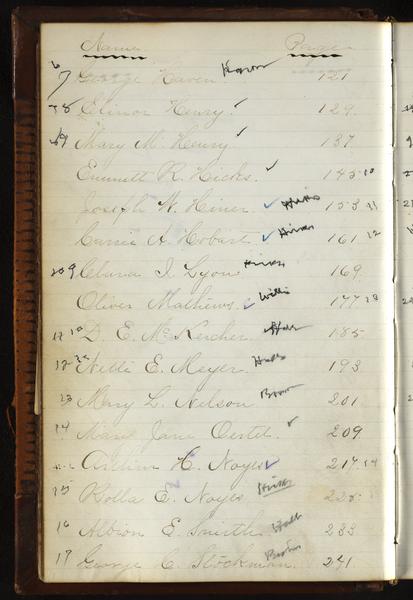 Name Page
7 George Haven 121
8 Elinor Henry ✓ 129
9 Mary M. Henry ✓ 137
Emmett R. Hicks ✓ 145 10
Joseph W. Hiner ✓ 153 11
Carrie A. Hobart ✓ 161 12
9 Clara I. Lyon 169
Oliver Mathews ✓ Willis 177
D. E. McKercher 185
12 Nelli E. Meyer 193
13 Mary L. Nelson Brown 201
14 Mary Jane Oertel ✓ 209
Arthur H. Noyes ✓ 217 14
15 Rolla E. Noyes 225
16 Albion E. Smith Hall 233
17 George C. Stockman 241